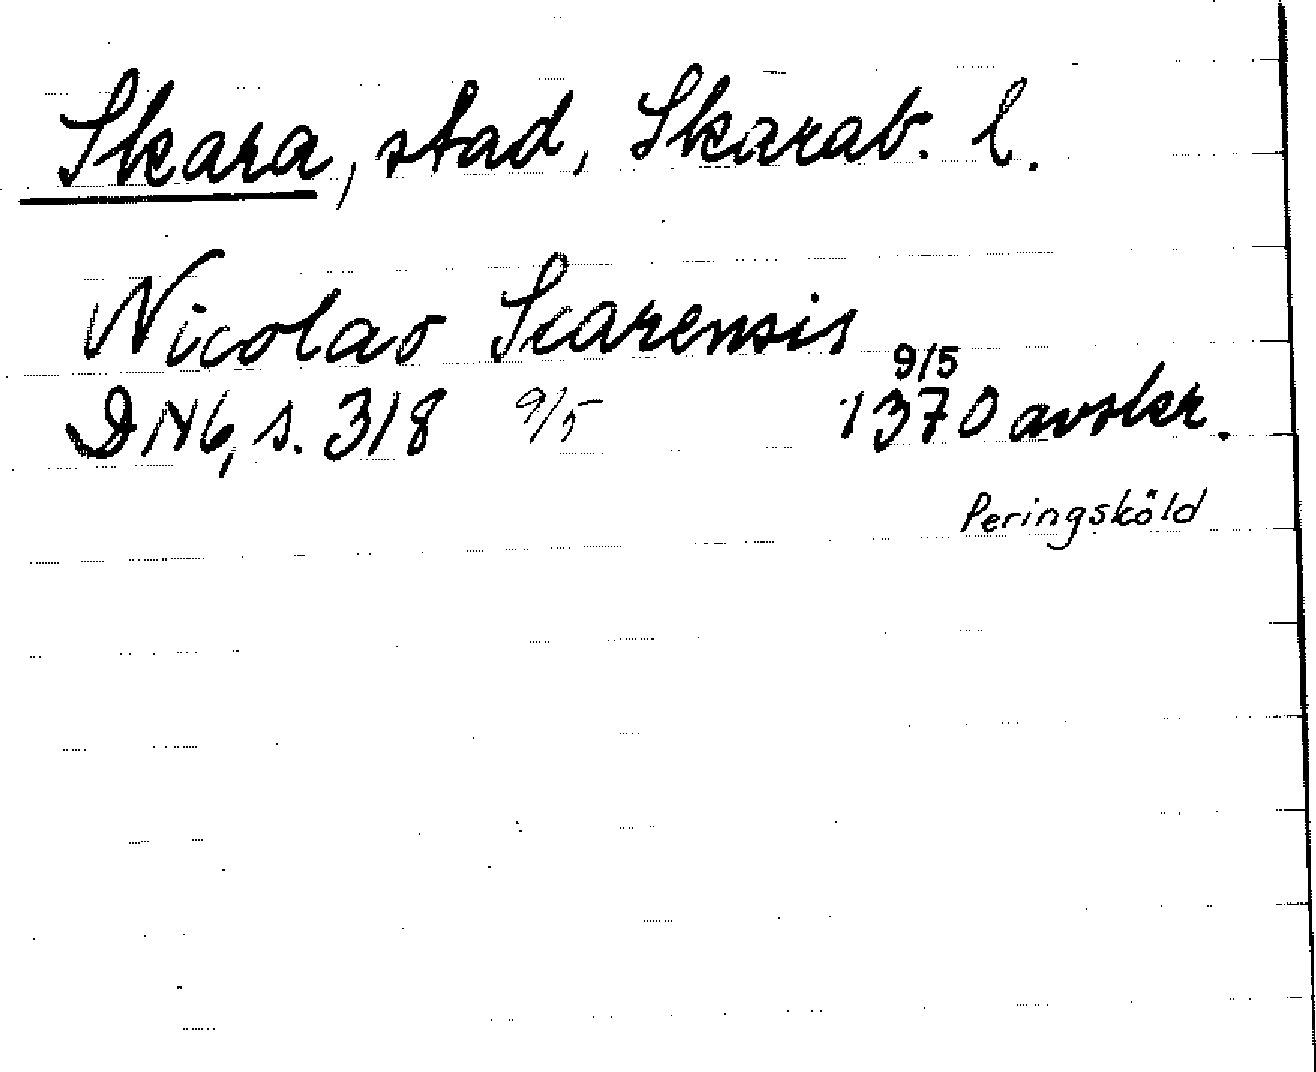 Skara, stad, Skarab. l.
Nicolao Scarensis
9/5
DN6, s. 318 9/5 1370 avskr.
Peringsköld